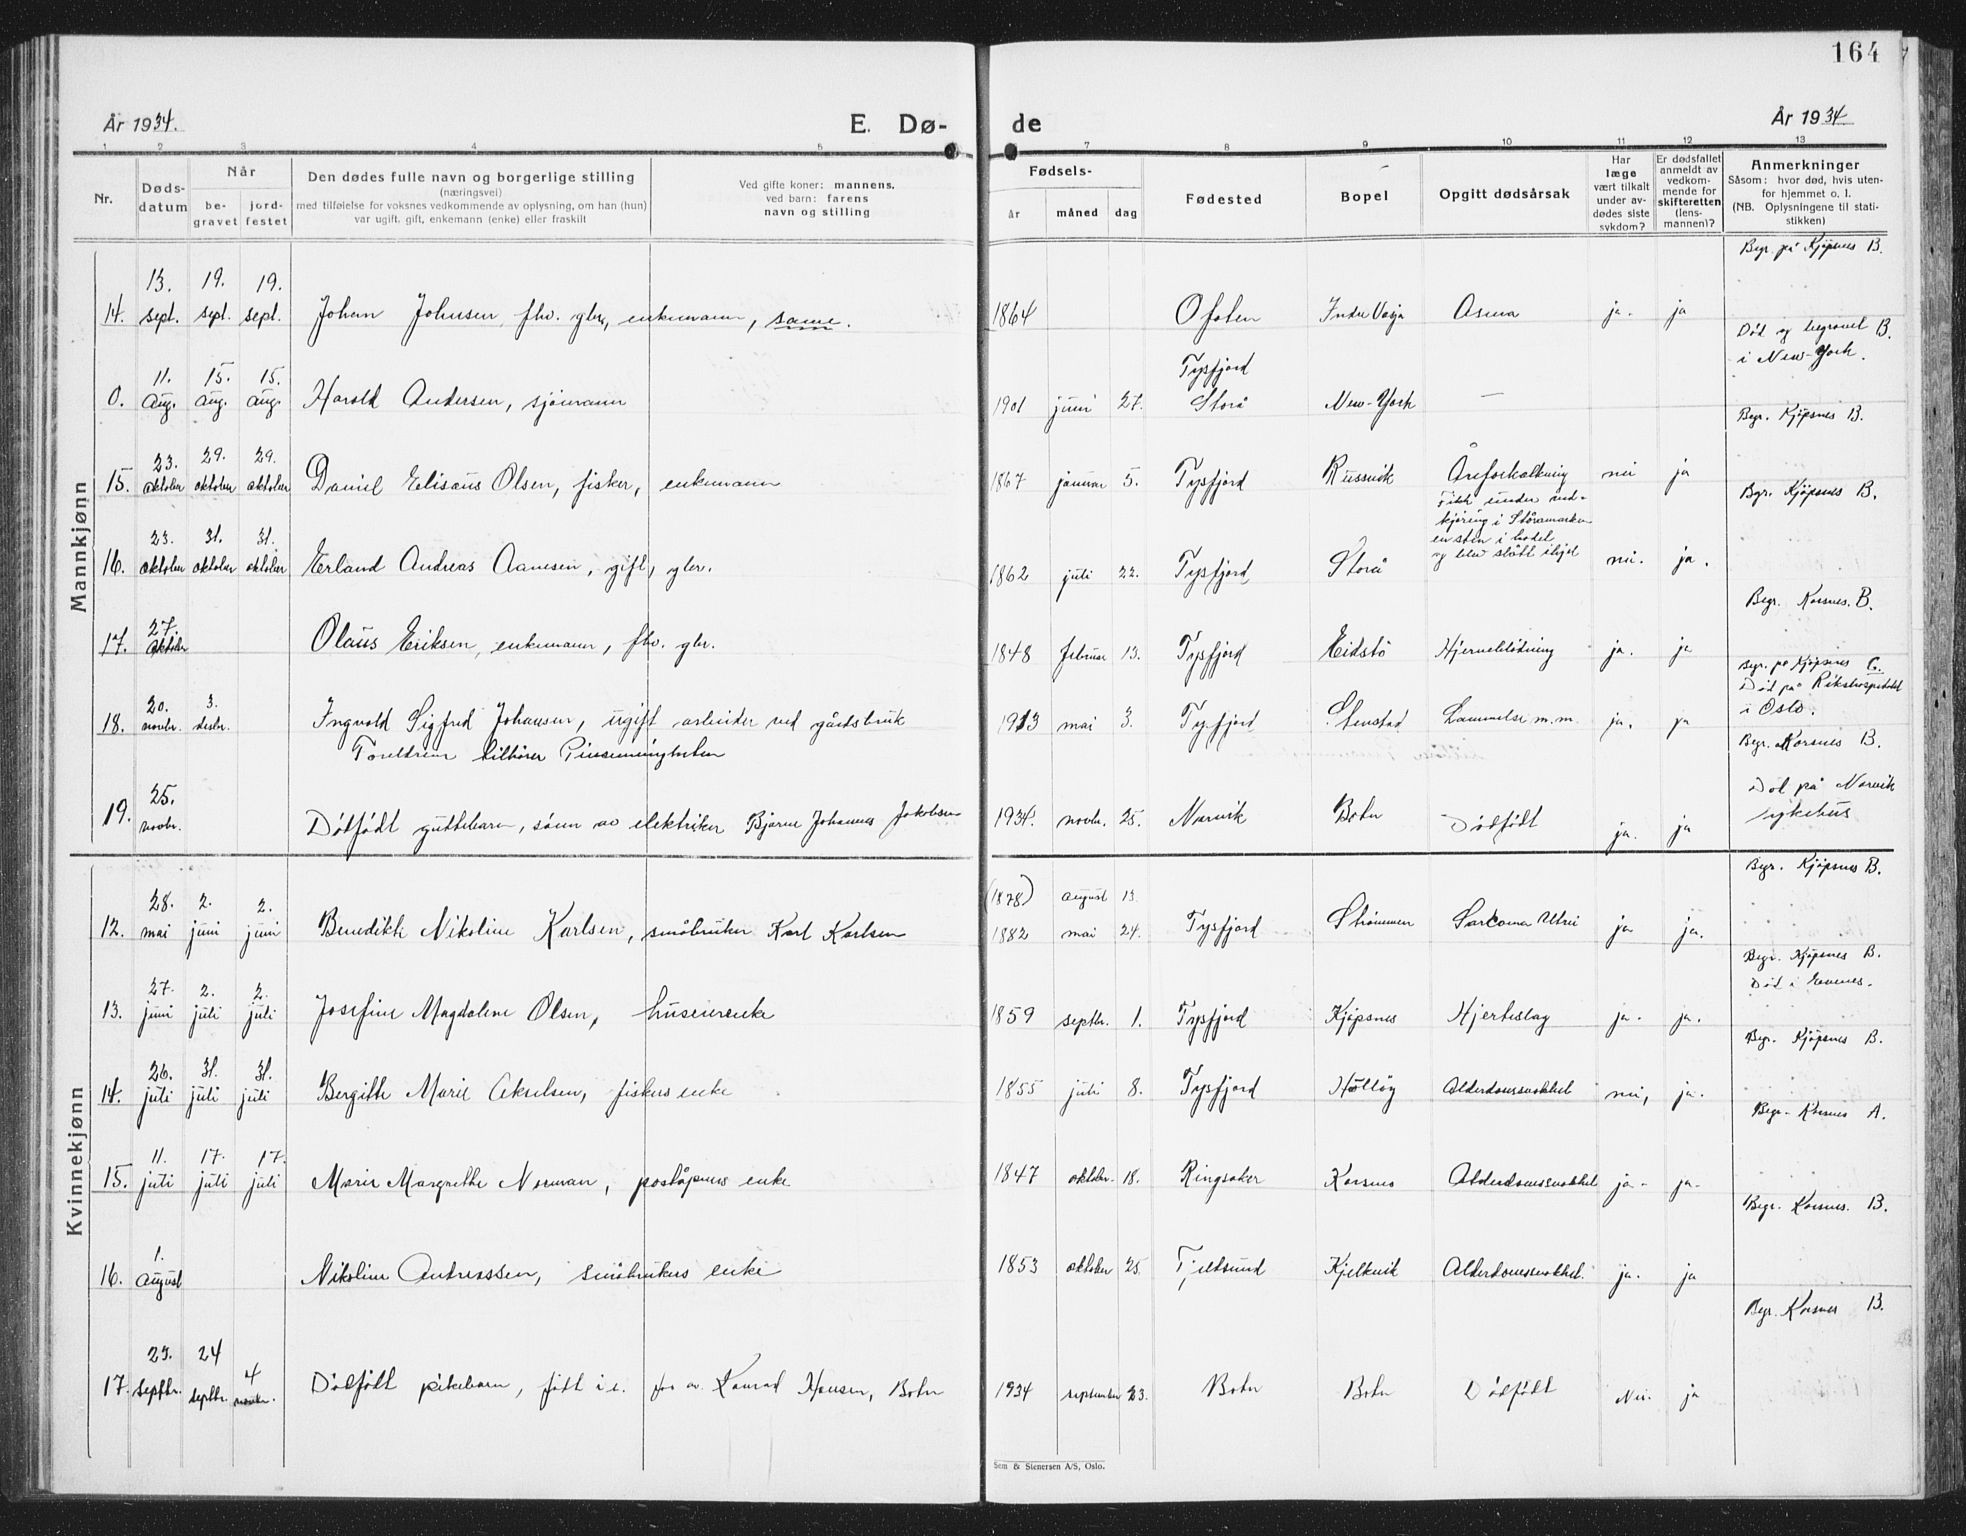 164
År 1934.
E. Dø-
de
År 1934
1 2 3 4 5 7 8 9 10 11 12 13
Nr.
Døds-
datum
Når
be-
gravet
jord-
festet
Den dødes fulle navn og borgerlige stilling
(næringsvei)
med tilføielse for voksnes vedkommende av oplysning, om han (hun)
var ugift, gift, enkemann (enke) eller fraskilt
Ved gifte koner: mannens.
ved barn: farens
navn og stilling
Fødsels-
år måned dag
Fødested
Bopel
Opgitt dødsårsak
Har
læge
vært tilkalt
under av-
dødes siste
sykdom?
Er dødsfallet
anmeldt av
vedkom-
mende for
skifteretten
(lens-
mannen)?
Anmerkninger
Såsom: hvor død, hvis uten-
for hjemmet o. l.
(NB. Oplysningene til stati-
stikken)
Mannkjønn
Begr. på Kjøpsnes B.
13. 19. 19.
14. sept. sept. sept. Johan Johnsen, fhv. gbr, enkemann, same. 1864 Ofoten Indre Asma ja. ja
Død og begravet B.
i New-York.
11. 15. 15. Tysfjord
0. Aug. Aug. Aug. Harold Andersen, sjømann 1901 juni 27. Storå New-York —
Begr. Kjøpsnes B.
23. 29. 29.
15. oktober oktober oktober Daniel Elisæus Olsen, fisker, enkemann 1867 januar 5. Tysfjord Russvik Åreforkalkning nei ja
Begr. Kjøpsnes B.
Fikk under ved-
kjøring i Storåmarken
en sten i hodet
og blev slått ihjel
23. 31. 31.
16. oktober oktober oktober Erland Andreas Aanesen, gift, gbr. 1862 juli 22. Tysfjord Storå nei. ja.
Begr. Korsnes. B.
27.
17. oktober Olaus Eriksen, enkemann, fhv. gbr. 1848 februar 13. Tysfjord Eidstø Hjerneblødning ja. ja
Begr. på Kjøpsnes C.
Død på Rikshospitalet
i Oslo.
20. 3.
18. novbr. desbr. Ingvald Sigfred Johansen, ugift arbeider ved gårdsbruk 1913 mai 3. Tysfjord Stenstad Lammelse m.m. ja. ja
Foreldrene tilhører Pinsemenigheten
Begr. Korsnes B.
25. Død på Narvik
sykehus
19. novbr. Dødfødt guttebarn, sønn av elektriker Bjarne Johannes Jakobsen 1934. novbr. 25. Narvik Botn Dødfødt ja. ja
Kvinnekjønn
Begr. Kjøpsnes B.
28. 2. 2. (1878) august 13.
12. mai juni juni Benedikte Nikoline Karlsen, småbruker Karl Karlsen 1882 mai 24. Tysfjord Strømmen Sarcoma Uteri ja ja.
Begr. Kjøpsnes B.
Død i Evenes.
27. 2. 2.
13. juni juli juli Josefine Magdalene Olsen, huseierenke 1859 septbr. 1. Tysfjord Kjøpsnes Hjerteslag ja. ja.
Begr. Kjøpsnes B.
26. 31. 31.
14. juli juli juli Bergitte Marie Akselsen, fiskers enke 1855 juli 8. Tysfjord Alderdomssvakhet nei, ja.
Begr. Korsnes A.
11. 17. 17.
15. juli juli juli Marie Margrethe Norman, poståpners enke 1847 oktober 18. Ringsaker Korsnes Alderdomssvakhet ja- ja-
Begr. Korsnes. B.
1.
16. august Nikoline Andreassen, småbrukers enke 1853 oktober 25. Tjeldsund Kjelkvik Alderdomssvakhet. ja. ja
Begr. Korsnes B.
23. 24 4
17. septbr. septbr. novbr. Dødfødt pikebarn, født i e. for av Konrad Hansen, Botn 1934 september 23. Botn Botn Dødfødt Nei. ja
Sem & Stenersen A/S, Oslo.